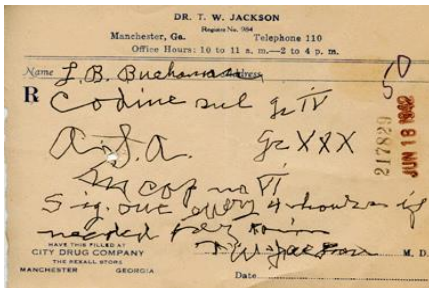 DR. T. W. JACKSON
Registry No. 984
Manchester, Ga. Telephone 110
Office Hours: 10 to 11 a. m.—2 to 4 p. m.
Name L. B. Buchanan Address
R Codine sul gr IV
A.S.A. gr XXX
In cap no VI
Sig. one every 4 hours if
needed for pain
T W Jackson M. D.
HAVE THIS FILLED AT
CITY DRUG COMPANY
THE REXALL STORE
MANCHESTER GEORGIA
Date
217829
JUN 18 1942